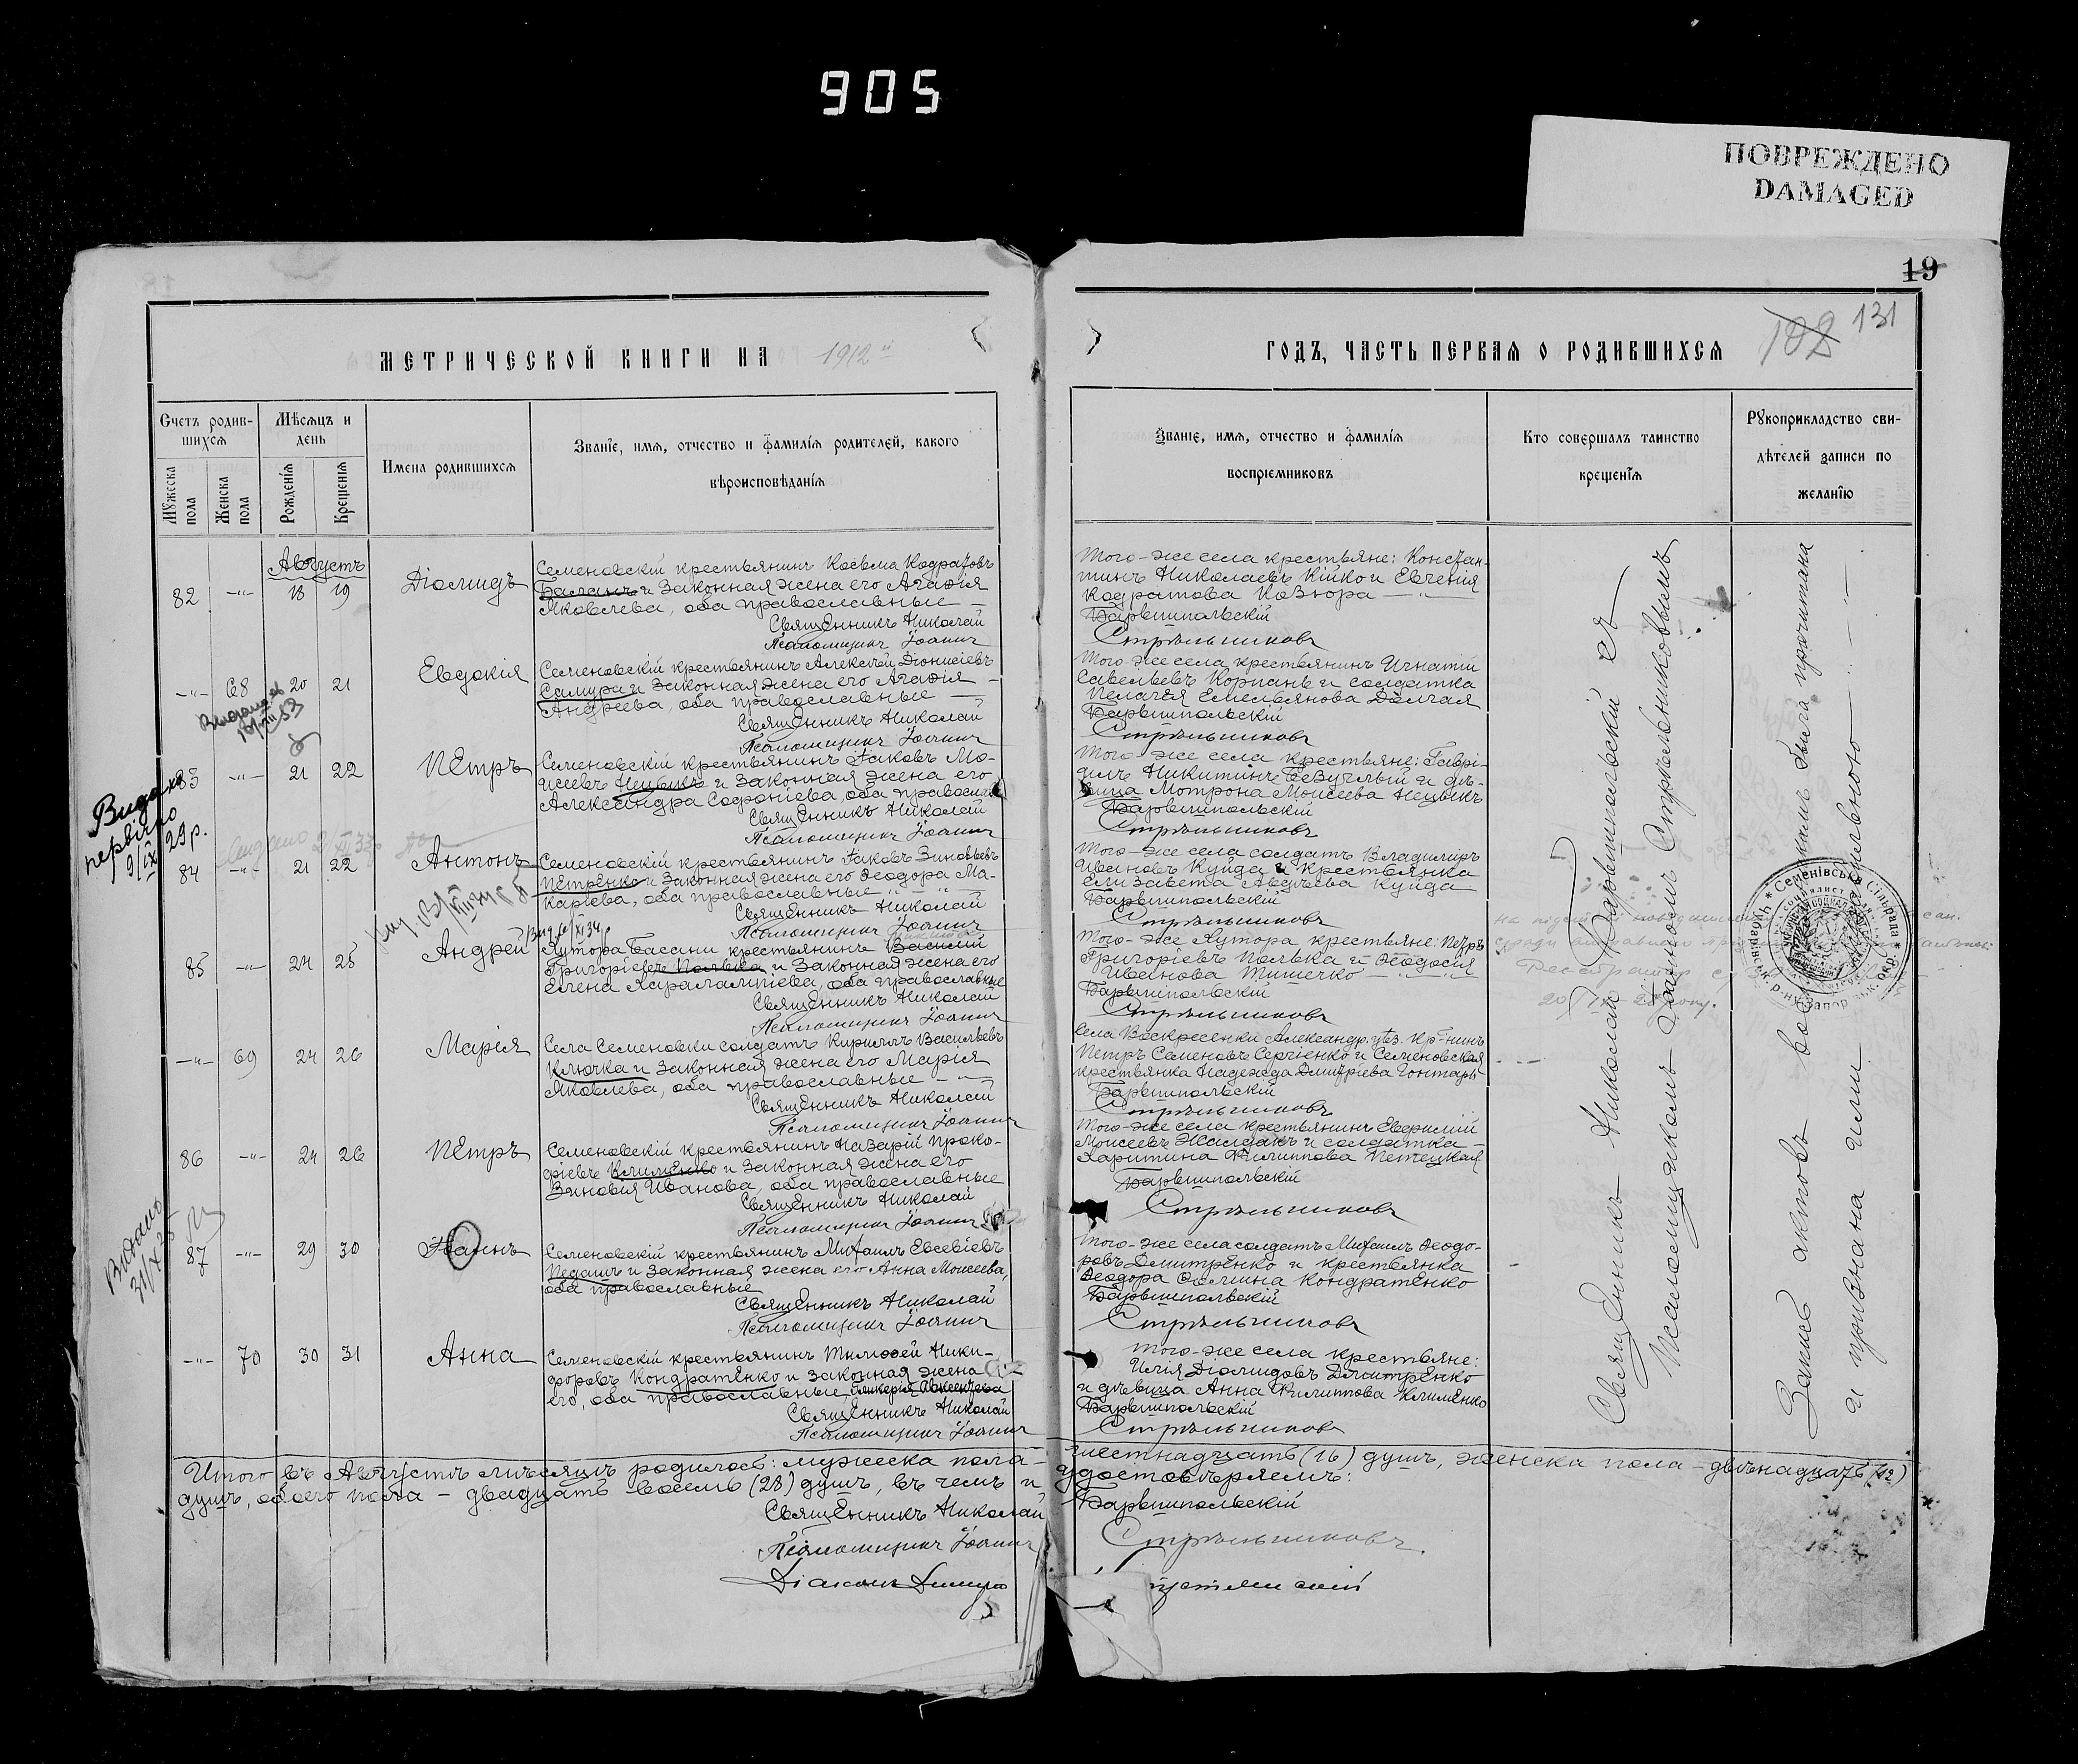 905
ПОВРЕЖДЕНО
DAMAGED
19
102 131
МЕТРИЧЕСКОЙ КНИГИ НА 1912 й
ГОДЪ, ЧАСТЬ ПЕРВАЯ О РОДИВШИХСЯ
Счетъ родив-
шихся
Мужеска
пола
Женска
пола
Мѣсяцъ и
день
Рожденія
Крещенія
Имена родившихся
Званіе, имя, отчество и фамилія родителей, какого
вѣроисповѣданія
Званіе, имя, отчество и фамилія
воспріемниковъ
Кто совершалъ таинство
крещенія
Рукоприкладство сви-
дѣтелей записи по
желанію
Августъ
82 -"- 18 19 Діомидъ
Семеновскій крестьянинъ Косьма Кодратовъ
Баланъ и законная жена его Агафія
Яковлева, оба православные
Священникъ Николай
Псаломщикъ Іоаннъ
Того-же села крестьяне: Констан-
тинъ Николаевъ Кійко и Евгенія
Кодратова Козюра
Барвшипольскій
Стрѣльниковъ
-"- 68 20 21 Евдокія
Семеновскій крестьянинъ Алексѣй Діонисіевъ
Самура и законная жена его Агафія
Андреева, оба православные
Священникъ Николай
Псаломщикъ Іоаннъ
Того-же села крестьянинъ Игнатій
Савельевъ Корпань и солдатка
Пелагея Емельянова Долгая
Барвшипольскій
Стрѣльниковъ
83 -"- 21 22 Петръ
Семеновскій крестьянинъ Іаковъ Мо-
исеевъ Нецыкъ и законная жена его
Александра Софоніева, оба православн
Священникъ Николай
Псаломщикъ Іоаннъ
Того-же села крестьяне: Гаврі-
илъ Никитинъ Безуглый и дѣ-
вица Мотрона Моисеева Нецыкъ
Барвшипольскій
Стрѣльниковъ
Видано
первично
9/IX 29р.
84 -"- 21 22 Антонъ
Семеновскій крестьянинъ Іаковъ Зиновьевъ
Петренко и законная жена его Ѳеодора Ма-
каріева, оба православные
Священникъ Николай
Псаломщикъ Іоаннъ
Того-же села солдатъ Владиміръ
Ивановъ Куйда и крестьянка
Елизавета Авдѣева Куйда
Барвшипольскій
Стрѣльниковъ
85 -"- 24 25 Андрей
Хутора Бассани крестьянинъ Василій
Григоріевъ Полька и законная жена его
Елена Харалампіева, оба православные
Священникъ Николай
Псаломщикъ Іоаннъ
Того-же хутора крестьяне: Петръ
Григоріевъ Полька и Ѳеодосія
Иванова Тимечко
Барвшипольскій
Стрѣльниковъ
-"- 69 24 26 Марія
Села Семеновки солдатъ Кириллъ Васильевъ
Ключка и законная жена его Марія
Яковлева, оба православные
Священникъ Николай
Псаломщикъ Іоаннъ
Села Воскресенки Александр. уѣз. кр-нинъ
Петръ Семеновъ Сергіенко и Семеновская
крестьянка Надежда Дмитріева Гонтарь
Барвшипольскій
Стрѣльниковъ
86 -"- 24 26 Петръ
Семеновскій крестьянинъ Назарій Проко-
фіевъ Клименко и законная жена его
Зиновія Иванова, оба православные
Священникъ Николай
Псаломщикъ Іоаннъ
Того-же села крестьянинъ Евфимій
Моисеевъ Жалдакъ и солдатка
Харитина Филиппова Петецкая
Барвшипольскій
Стрѣльниковъ
Видано
31/X 35
87 -"- 29 30 Іоаннъ
Семеновскій крестьянинъ Михаилъ Евсевіевъ
Педашъ и законная жена его Анна Моисеева,
оба православные
Священникъ Николай
Псаломщикъ Іоаннъ
Того-же села солдатъ Михаилъ Ѳеодо-
ровъ Дмитренко и крестьянка
Ѳеодора Фомина Кондратенко
Барвшипольскій
Стрѣльниковъ
-"- 70 30 31 Анна
Семеновскій крестьянинъ Тимоѳей Ники-
форовъ Кондратенко и законная жена
его, оба православные Гликерія Авксентіева
Священникъ Николай
Псаломщикъ Іоаннъ
Того-же села крестьяне:
Илія Діомидовъ Дмитренко
и дѣвица Анна Филиппова Клименко
Барвшипольскій
Стрѣльниковъ
Священникъ Николай Барвшипольскій съ
Псаломщикомъ Іоанномъ Стрѣльниковымъ
Запись актовъ была прочитана
и признана
Семенівська Сільрада
Итого въ Августѣ мѣсяцѣ родилось: мужеска пола - шестнадцать (16) душъ, женска пола - двѣнадцать (12)
душъ, обоего пола - двадцать восемь (28) душъ, въ чемъ и удостовѣряемъ:
Священникъ Николай Барвшипольскій
Псаломщикъ Іоаннъ Стрѣльниковъ.
Діаконъ